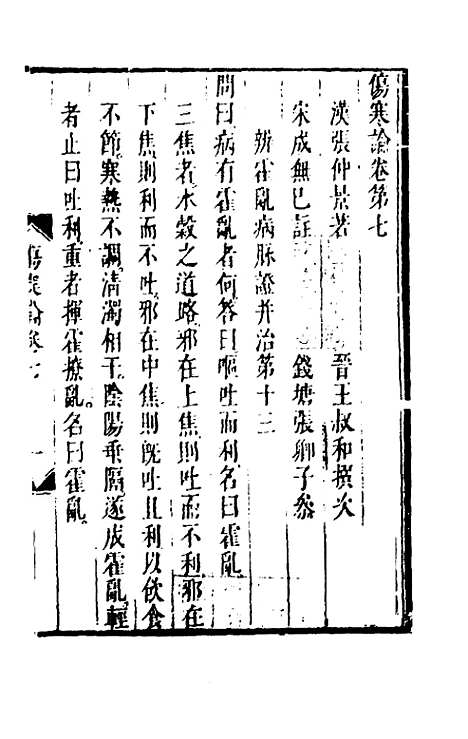 傷寒論卷第七
漢張仲景著　晉王叔和撰次
宋成無已註　錢塘張卿子叅
辨霍亂病脉證并治第十三
問曰病有霍亂者何答曰嘔吐而利名曰霍亂
三焦者水穀之道路邪在上焦則吐而不利邪在
下焦則利而不吐邪在中焦則旣吐且利以飲食
不節寒熱不調清濁相干陰陽乖隔遂成霍亂輕
者止曰吐利重者揮霍撩亂名曰霍亂
傷寒論卷七　一